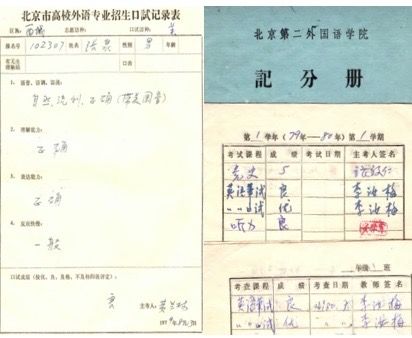 北京市高校外语专业招生口試记录表
区县 西城 志愿语种 口试语种 英
报名号 102307 姓名 性別 男 年龄
有无生理缺陷 口齿
1. 语音、语调、语流:
自然,流利,正确
2. 理解能力:
正确
3. 表达能力:
正确
4. 反应快慢:
一般
口试成绩(按优、良、及格、不及格四级评定):
良
主考人:
北京第二外国语学院
記分册
第1学年(79年—80年)第1学期
考试课程 成绩 考试日期 主考人签名
党史 5
英语笔试 良 李汝梅
〃〃口试 优 李汝梅
听力 良
考查课程 成绩 考查日期 教师签名
英语笔试 良 李汝梅
〃〃口试 优 李汝梅